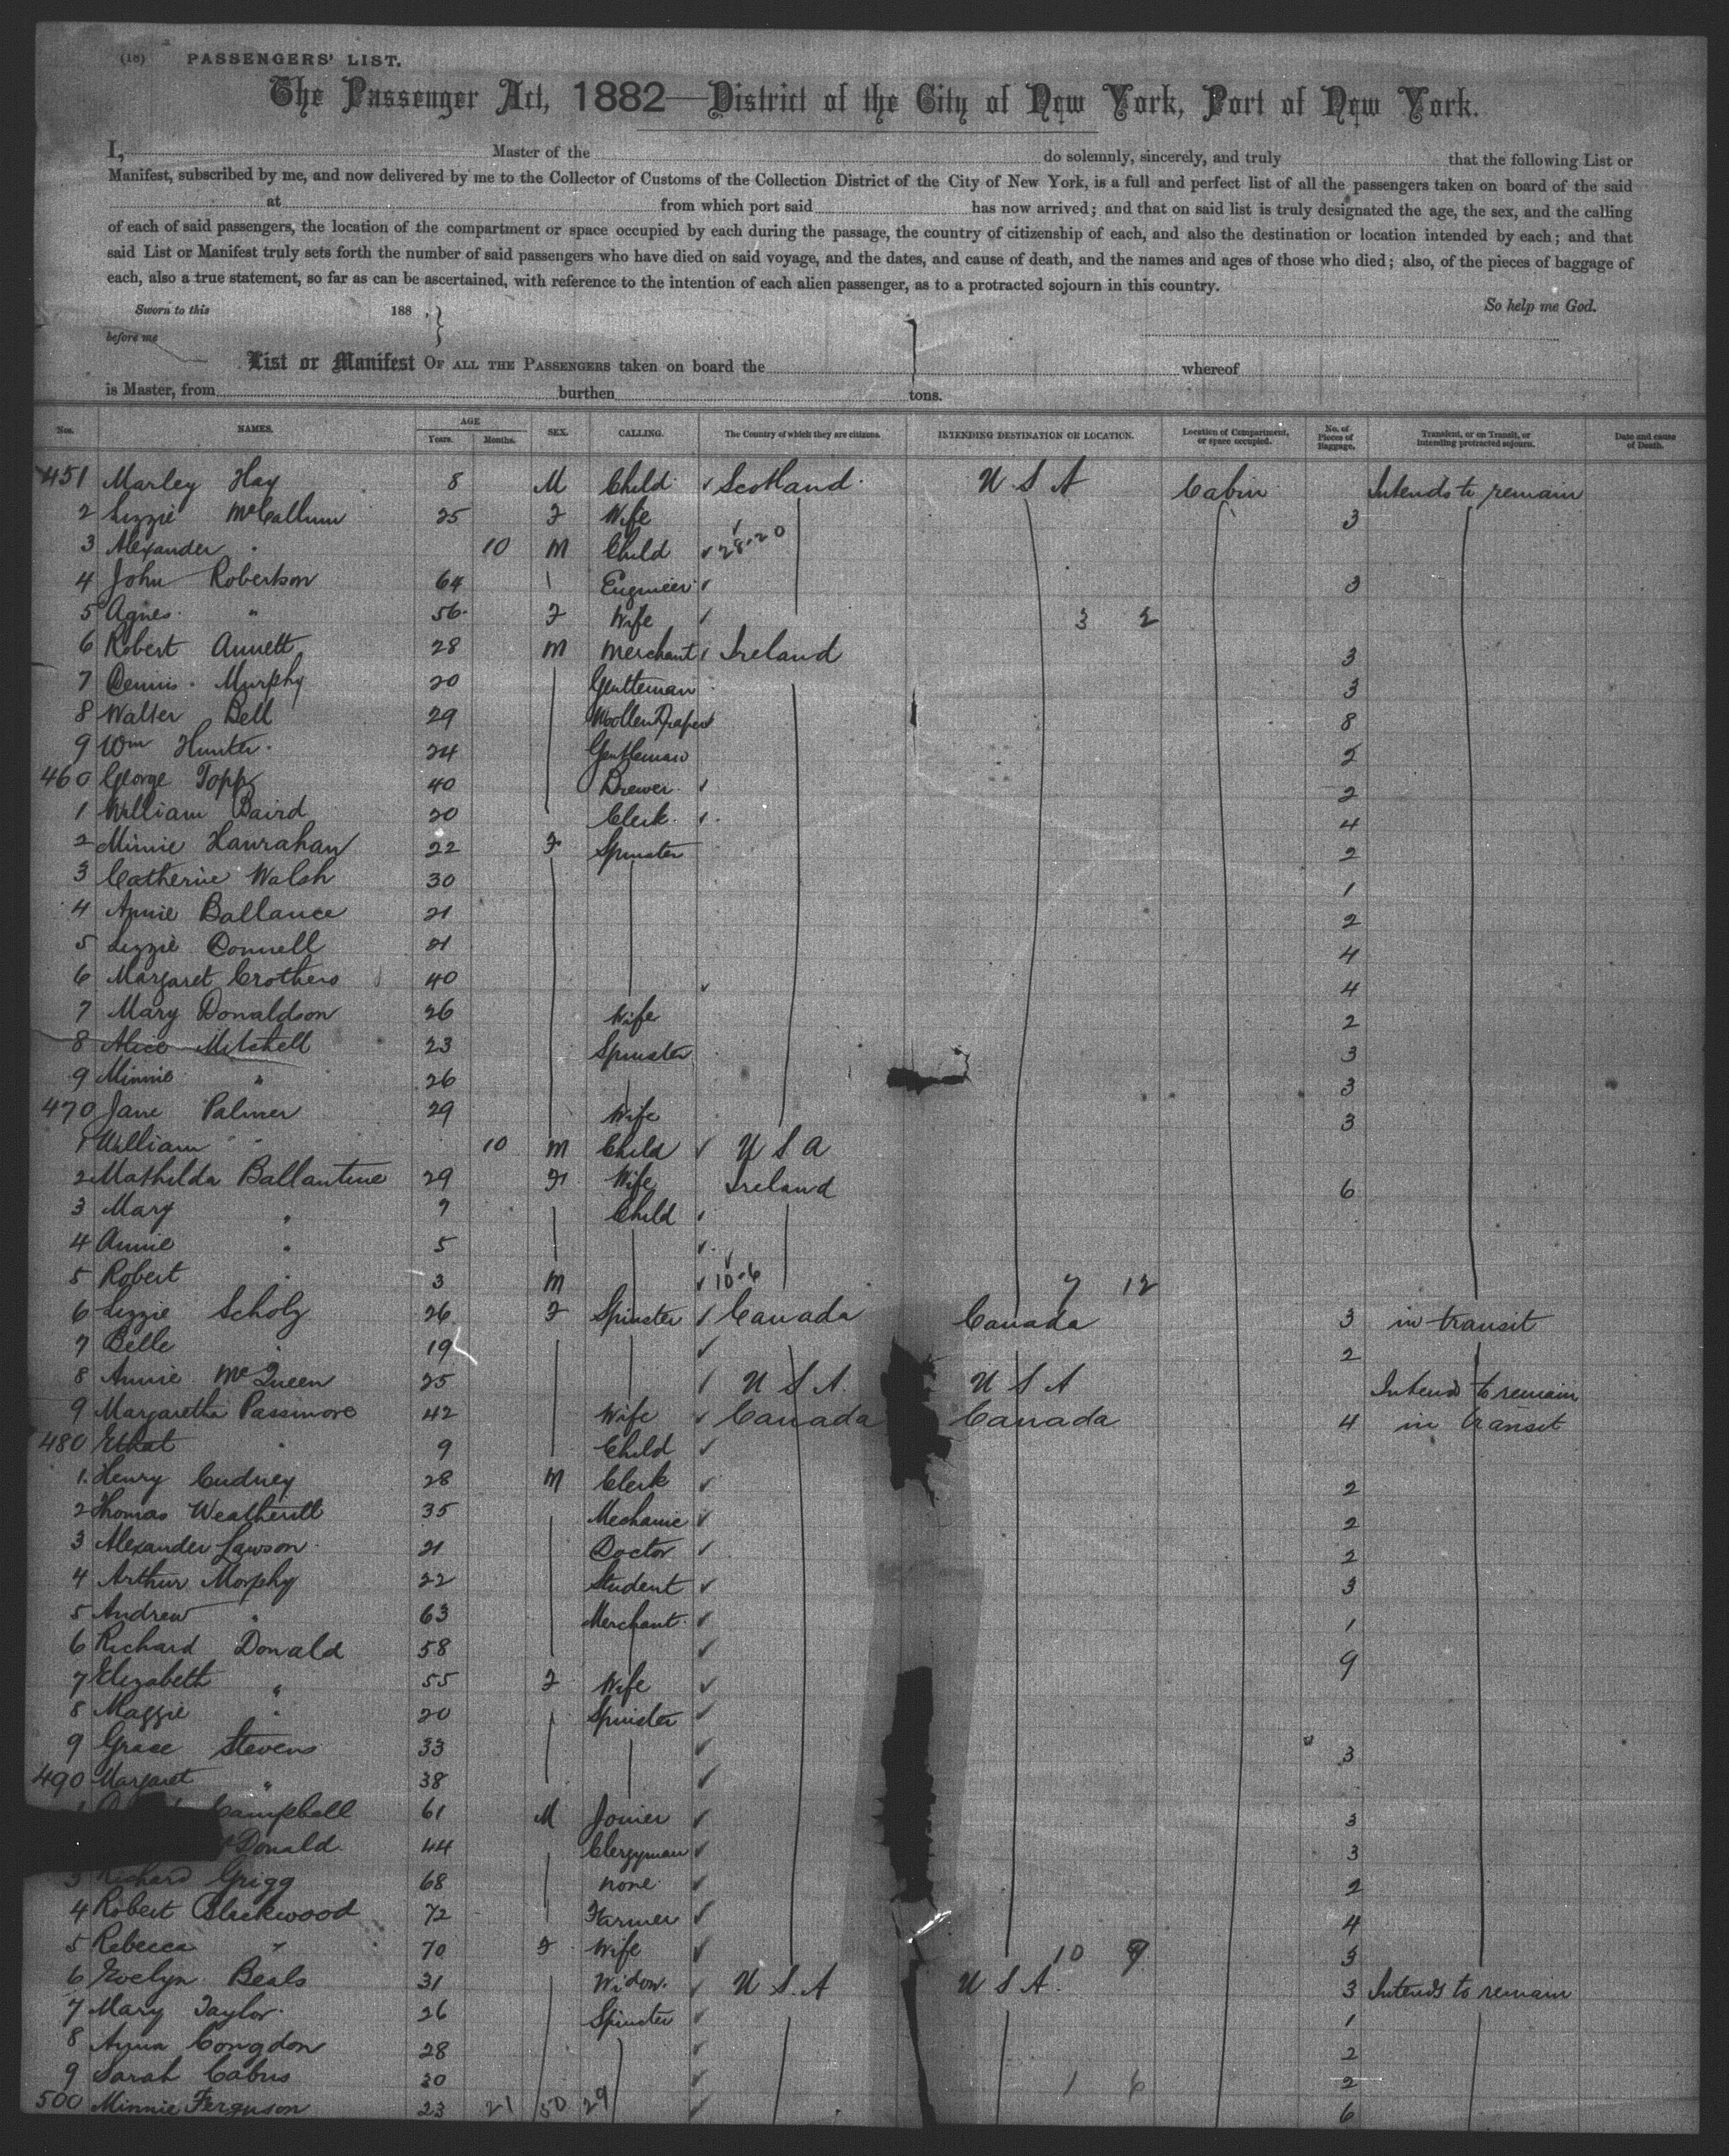 (18) PASSENGERS' LIST.
The Passenger Act, 1882—District of the City of New York, Port of New York.
I, Master of the do solemnly, sincerely, and truly that the following List or
Manifest, subscribed by me, and now delivered by me to the Collector of Customs of the Collection District of the City of New York, is a full and perfect list of all the passengers taken on board of the said
at from which port said has now arrived; and that on said list is truly designated the age, the sex, and the calling
of each of said passengers, the location of the compartment or space occupied by each during the passage, the country of citizenship of each, and also the destination or location intended by each; and that
said List or Manifest truly sets forth the number of said passengers who have died on said voyage, and the dates, and cause of death, and the names and ages of those who died; also, of the pieces of baggage of
each, also a true statement, so far as can be ascertained, with reference to the intention of each alien passenger, as to a protracted sojourn in this country.
Sworn to this 188 , So help me God.
before me
List or Manifest OF ALL THE PASSENGERS taken on board the whereof
is Master, from burthen tons.
Nos. NAMES. AGE Years. Months. SEX. CALLING. The Country of which they are citizens. INTENDING DESTINATION OR LOCATION. Location of Compartment, or space occupied. No. of Pieces of Baggage. Transient, or on Transit, or intending protracted sojourn. Date and cause of Death.
451 Marley Hay 8 M Child ✓ Scotland U S A Cabin Intends to remain
2 Lizzie McCallum 25 F Wife 3
3 Alexander " 10 M Child ✓ 28-20
4 John Robertson 64 Engineer ✓ 3
5 Agnes " 56 F Wife ✓ 3 2
6 Robert Annett 28 M Merchant ✓ Ireland 3
7 Dennis Murphy 20 Gentleman 3
8 Walter Bell 29 Woollen Draper 8
9 Wm Hunter 24 Gentleman 2
460 George Topp 40 Brewer ✓ 2
1 William Baird 20 Clerk ✓ 4
2 Minnie Hanrahan 22 F Spinster 2
3 Catherine Walsh 30 1
4 Annie Ballance 21 2
5 Lizzie Connell 21 4
6 Margaret Crothers 40 ✓ 4
7 Mary Donaldson 26 Wife 2
8 Alice Mitchell 23 Spinster 3
9 Minnie " 26 3
470 Jane Palmer 29 Wife 3
1 William " 10 M Child ✓ U S A
2 Mathilda Ballantine 29 F Wife Ireland 6
3 Mary " 7 Child ✓
4 Annie " 5 ✓
5 Robert " 3 M ✓ 10-6 7 12
6 Lizzie Scholz 26 F Spinster ✓ Canada Canada 3 in transit
7 Belle " 19 ✓ 2
8 Annie McQueen 25 ✓ U S A U S A Intend to remain
9 Margaretha Passmore 42 Wife ✓ Canada Canada 4 in transit
480 Ethal " 9 Child ✓
1 Henry Cudney 28 M Clerk ✓ 2
2 Thomas 35 Mechanic ✓ 2
3 Alexander Lawson 21 Doctor ✓ 2
4 Arthur Morphy 22 Student ✓ 3
5 Andrew " 63 Merchant ✓ 1
6 Richard Donald 58 ✓ 9
7 Elizabeth " 55 F Wife ✓
8 Maggie " 20 Spinster ✓
9 Grace Stevens 33 ✓ 3
490 Margaret " 38 ✓
Campbell 61 M Joiner ✓ 3
Donald 44 Clergyman ✓ 3
3 Richard Grigg 68 none ✓ 2
4 Robert Blackwood 72 Farmer ✓ 4
5 Rebecca " 70 F Wife ✓ 10 9 3
6 Evelyn Beals 31 Widow ✓ U S A U S A 3 Intends to remain
7 Mary Taylor 26 Spinster ✓ 1
8 Anna Congdon 28 ✓ 2
9 Sarah Cabus 30 ✓ 1 6 2
500 Minnie Ferguson 23 21 50 29 ✓ 6